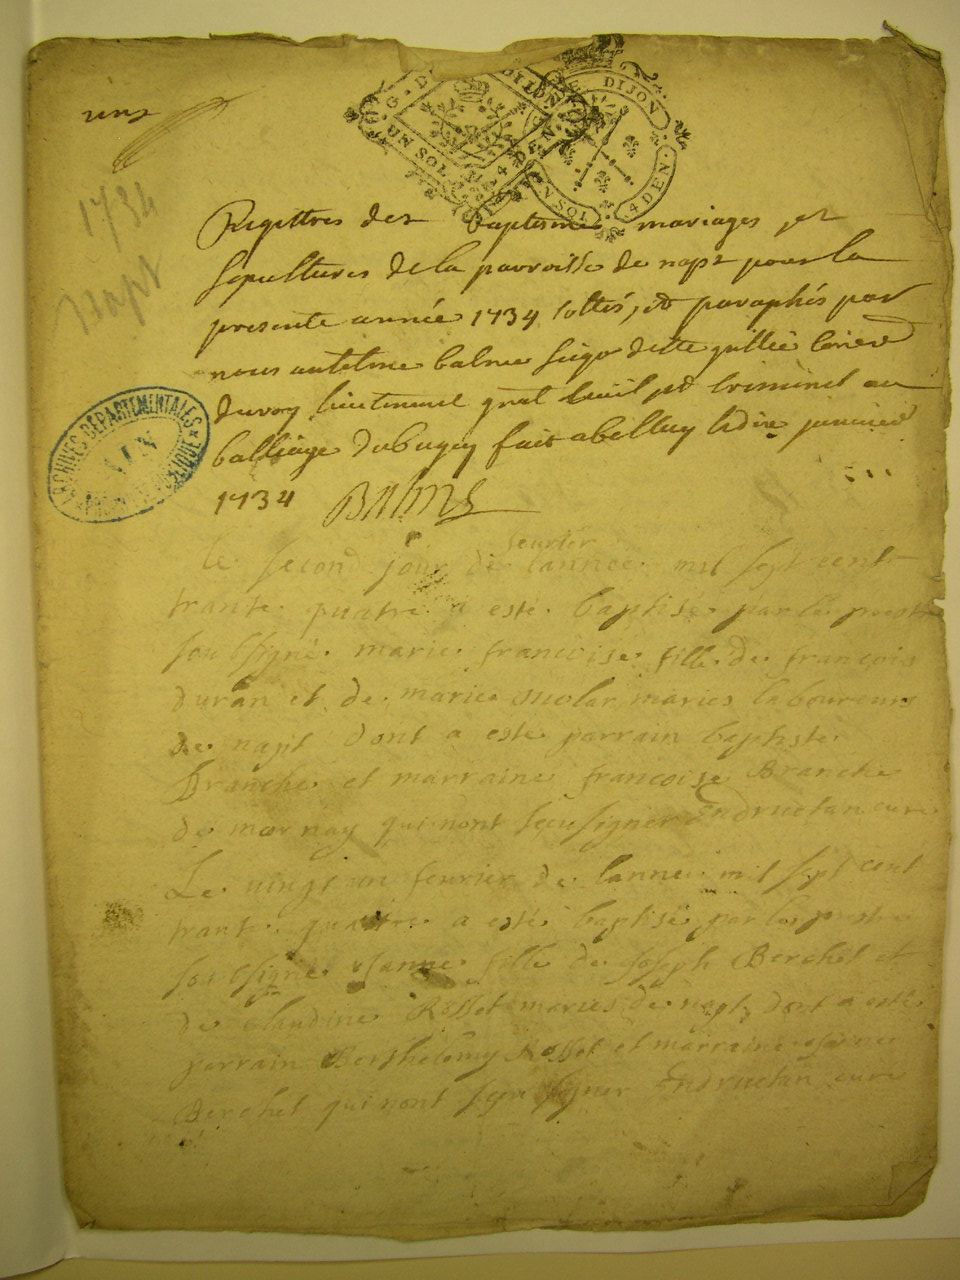 une
G. DE DIJON
UN SOL 4 DEN.
DIJON
UN SOL 4 DEN.
1734
Napt
Registres des baptesme mariages et
sepultures de la parroisse de napt pour la
presente année 1734 cottés, et paraphés par
nous antelme balme seigr dette
lieutenant gnal civil et criminel au
balliage du bugey fait a belley le dix janvier
1734 Balme
ARCHIVES DÉPARTEMENTALES
AIN
le second jour de feurier lannee mil sept cent
trante quatre a esté baptisée par le prest
soubsigné marie francoise fille de francois
duran et de marie molar maries laboureurs
de napt dont a esté parrain baptiste
Branche et marraine francoise Branche
de mornay qui nont sceu signer Endructan curé
Le vingt un feurier de lanné mil sept cent
trante quattre a esté baptisé par le prestre
soubsigné Janne fille de Joseph Berchet et
de Claudine Rosset maries de napt dont a esté
parrain Berthelemy Rosset et marraine
Berchet qui nont sceu signer Endructan curé